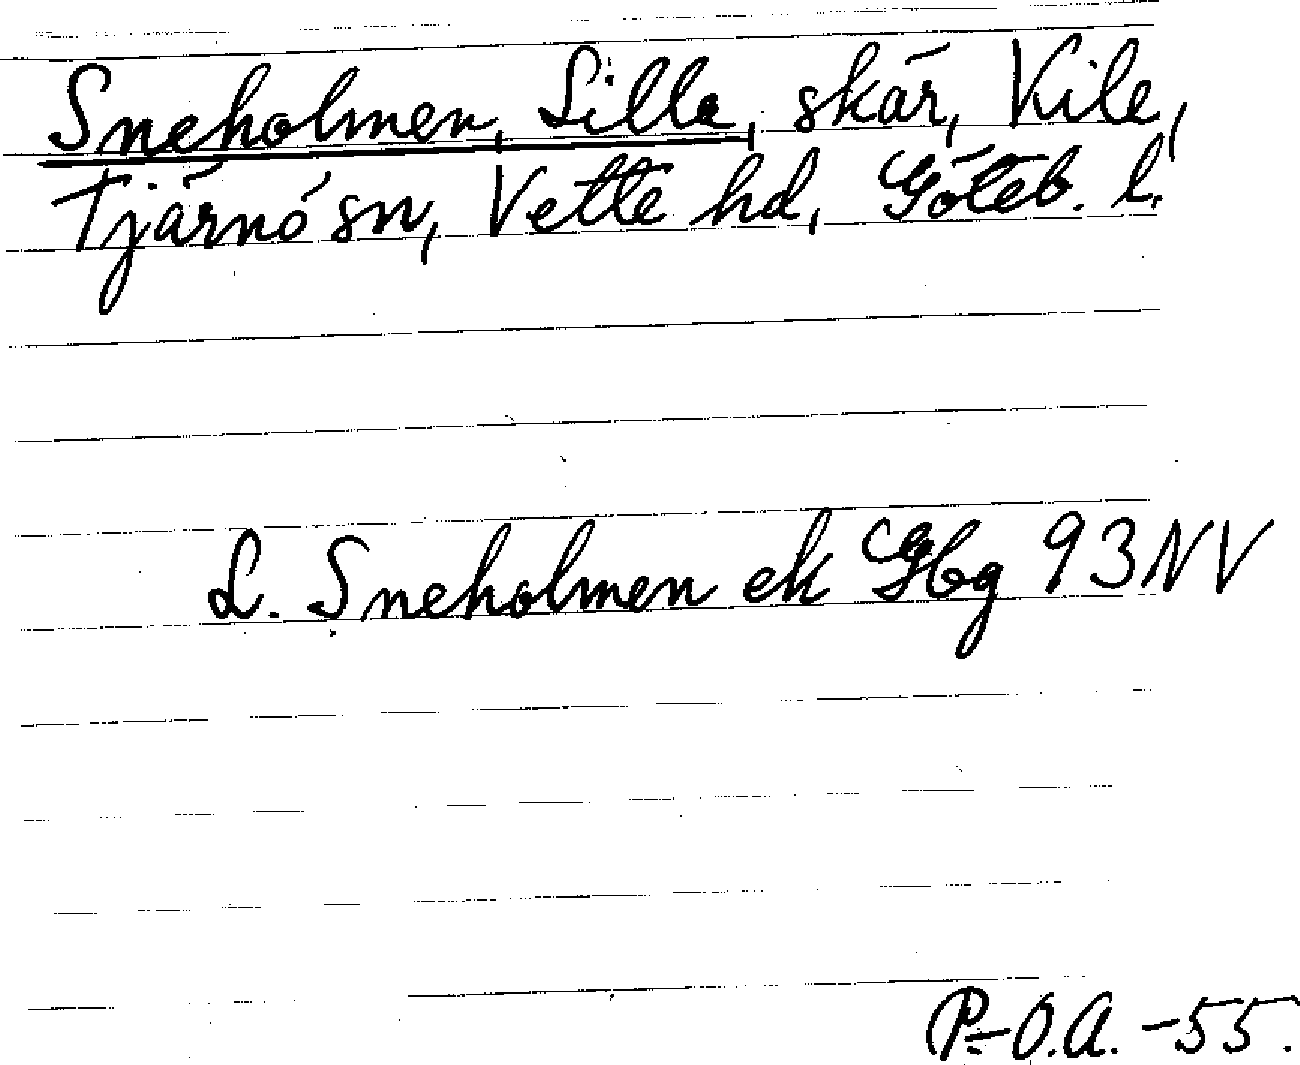 Sneholmen, Lilla, skär, Kile,
Tjärnö sn, Vette hd, Göteb. l.
L. Sneholmen ek Gbg 93 NV
P-O.A. -55.